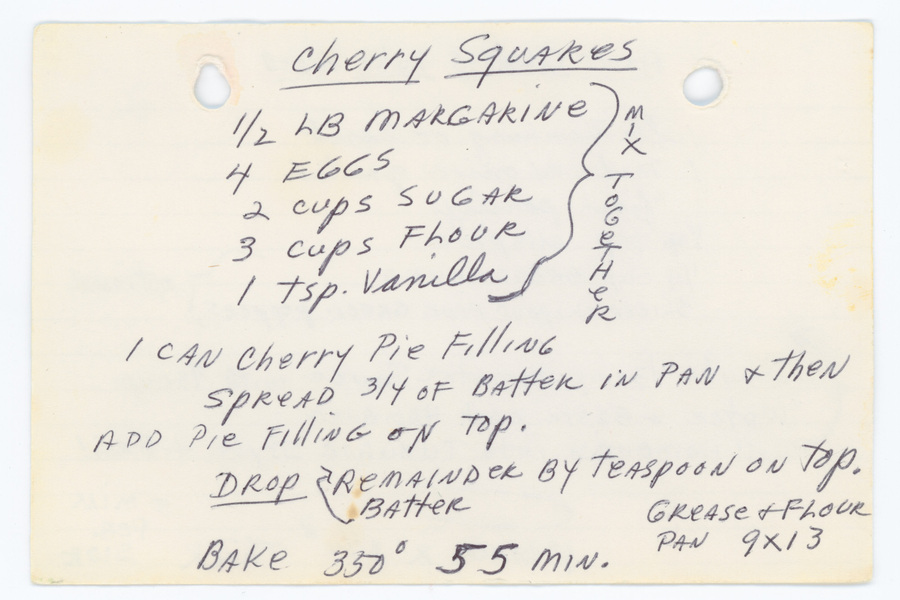 Cherry Squares
1/2 LB MARGARINE
4 EGGS
2 cups SUGAR
3 cups FLOUR
1 tsp. Vanilla
MIX TOGETHER
1 CAN Cherry Pie Filling
SPREAD 3/4 OF BATTER IN PAN & then
ADD Pie Filling ON Top.
DROP REMAINDER BY TEASPOON ON Top.
BATTER
GREASE & FLOUR
PAN 9X13
BAKE 350° 55 MIN.